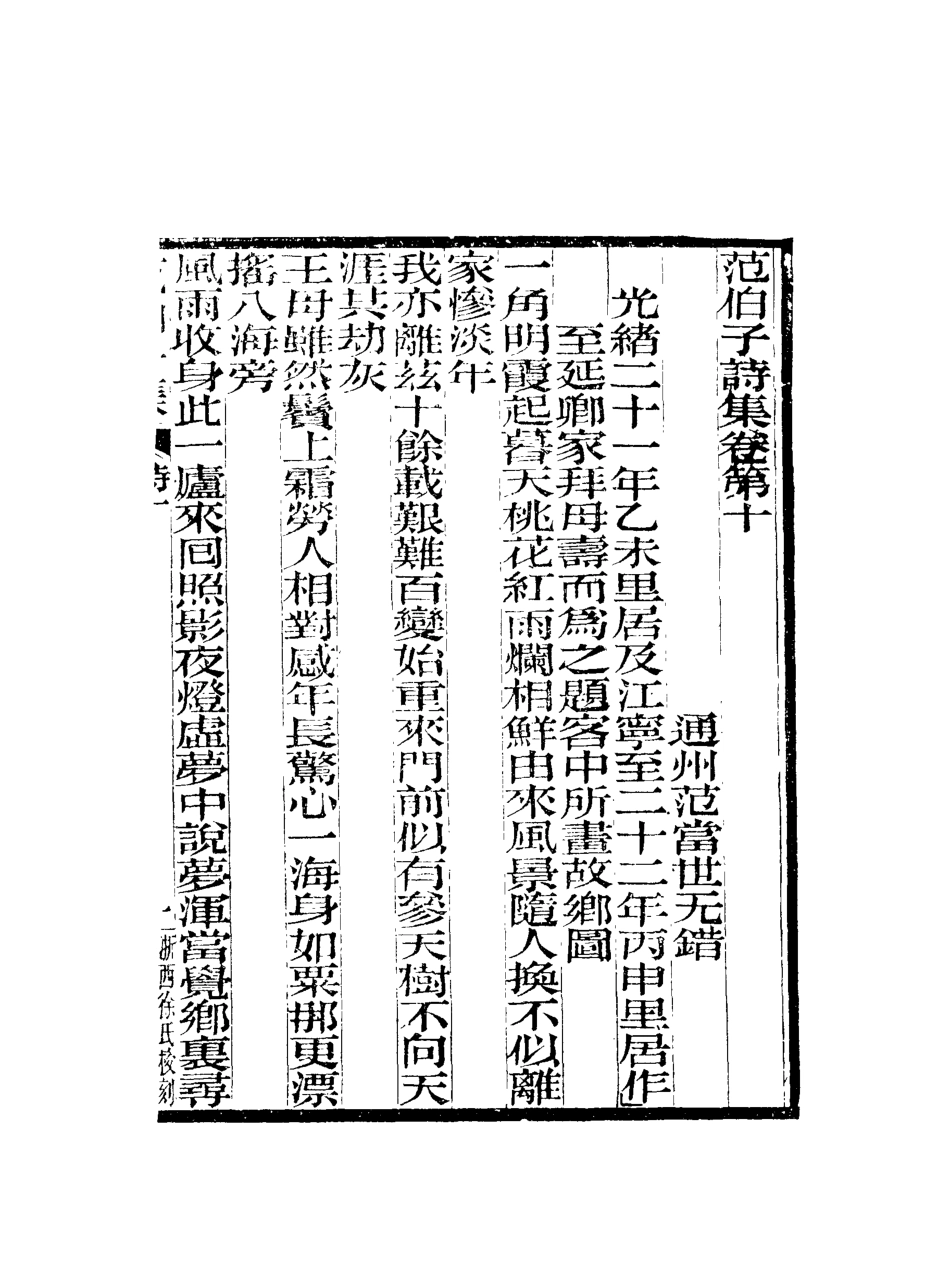 范伯子詩集卷第十
通州范當世无錯
光緒二十一年乙未里居及江寧至二十二年丙申里居作
至延卿家拜母壽而為之題客中所畫故鄉圖
一角明霞起暮天桃花紅雨爛相鮮由來風景隨人換不似離
家慘淡年
我亦離茲十餘載艱難百變始重來門前似有參天樹不向天
涯共劫灰
王母雖然鬢上霜勞人相對感年長驚心一海身如粟挪更漂
搖八海旁
風雨收身此一廬來回照影夜燈虛夢中說夢渾當覺鄉裏尋
詩一
浙西徐氏校刻